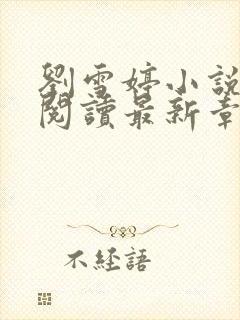 劉雪婷小說
閱讀最新章
不經語